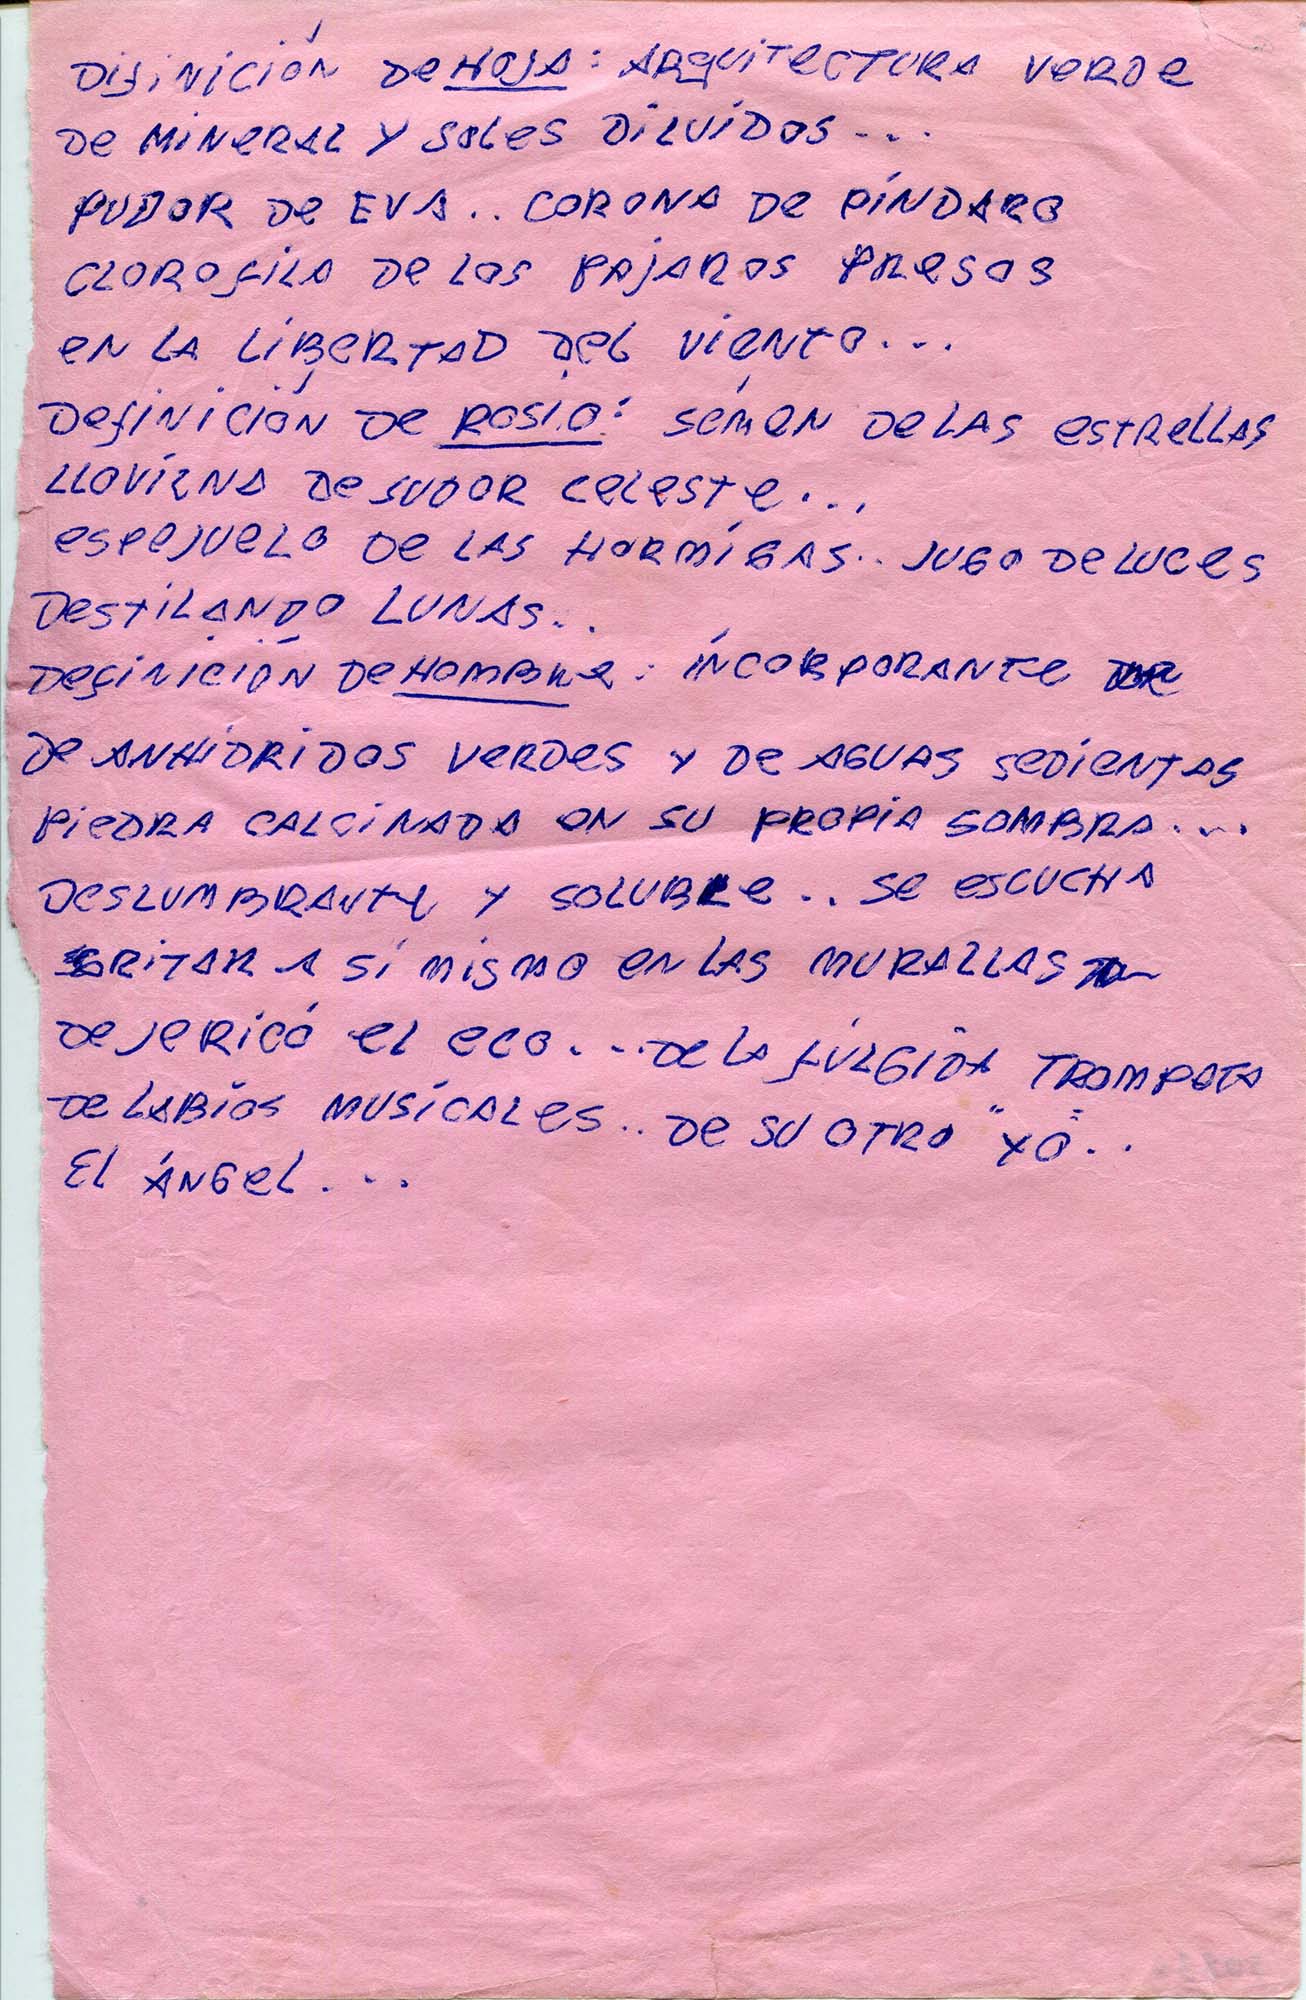 Difinición de HOJA: ARquiTECTURA VERDE
DE MINERAL Y SOLES DILUÍDOS...
PUDOR DE EVA.. CORONA DE PÍNDARO
CLOROFILA DE LOS PAJAROS PRESOS
EN LA LIBERTAD DEL VIENTO...
DEFINICIÓN DE ROSIO: SÉMEN DE LAS ESTRELLAS
LLOVIZNA DE SUDOR CELESTE...
ESPEJUELO DE LAS HORMÍGAS.. JUGO DE LUCES
DESTILANDO LUNAS..
DEFINICIÓN DE HOMBRE: INCORPORANTE
DE ANHIDRIDOS VERDES Y DE AGUAS SEDIENTAS
PIEDRA CALCINADA EN SU PROPIA SOMBRA....
DESLUMBRANTE Y SOLUBLE.. SE ESCUCHA
GRITAR A SÍ MISMO EN LAS MURALLAS
DE JERICÓ EL ECO...DE LA FÚLGIDA TROMPETA
DE LABIOS MUSÍCALES.. DE SU OTRO "YO"..
El ÁNGEL...